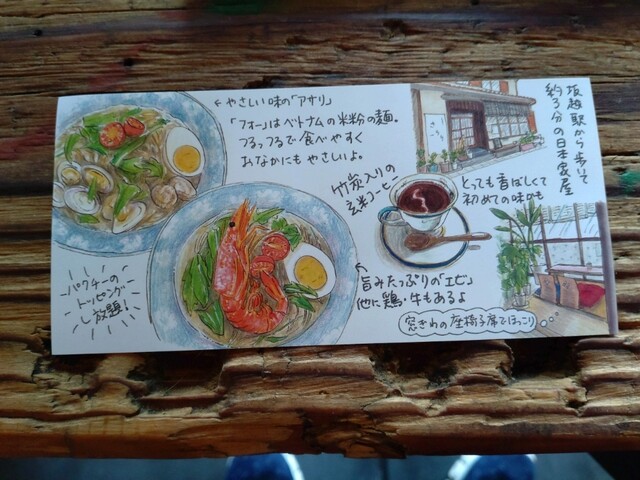 ←やさしい味の「アサリ」
「フォー」はベトナムの米粉の麺。
つるっつるで食べやすく
おなかにもやさしいよ。
坂越駅から歩いて
約3分の日本家屋
竹炭入りの
玄米コーヒー
とっても香ばしくて
初めての味かも
パクチーの
トッピング
し放題!
旨みたっぷりの「エビ」
他に鶏・牛もあるよ
窓ぎわの座椅子席でほっこり